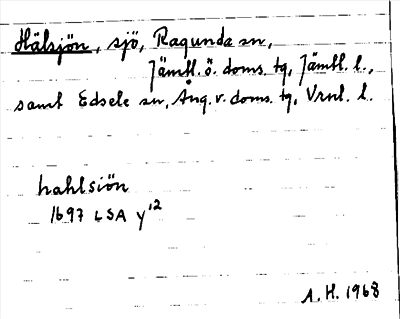 Hälsjön, sjö, Ragunda sn,
Jämtl. ö. doms. tg, Jämtl. l.,
samt Edsele sn, Ång. v. doms. tg, Vrnl. l.
hahlsiön
1697 LSA y'2
A. H. 1968